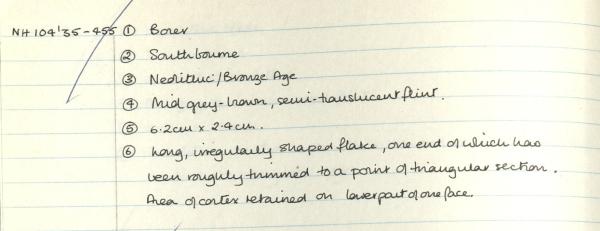 NH 104'35-455 ① Borer
② Southbourne
③ Neolithic/Bronze Age
④ Mid grey-brown, semi-translucent flint.
⑤ 6.2cm x 2.4cm.
⑥ Long, irregularly shaped flake, one end of which has
been roughly trimmed to a point of triangular section.
Area of cortex retained on lower part of one face.